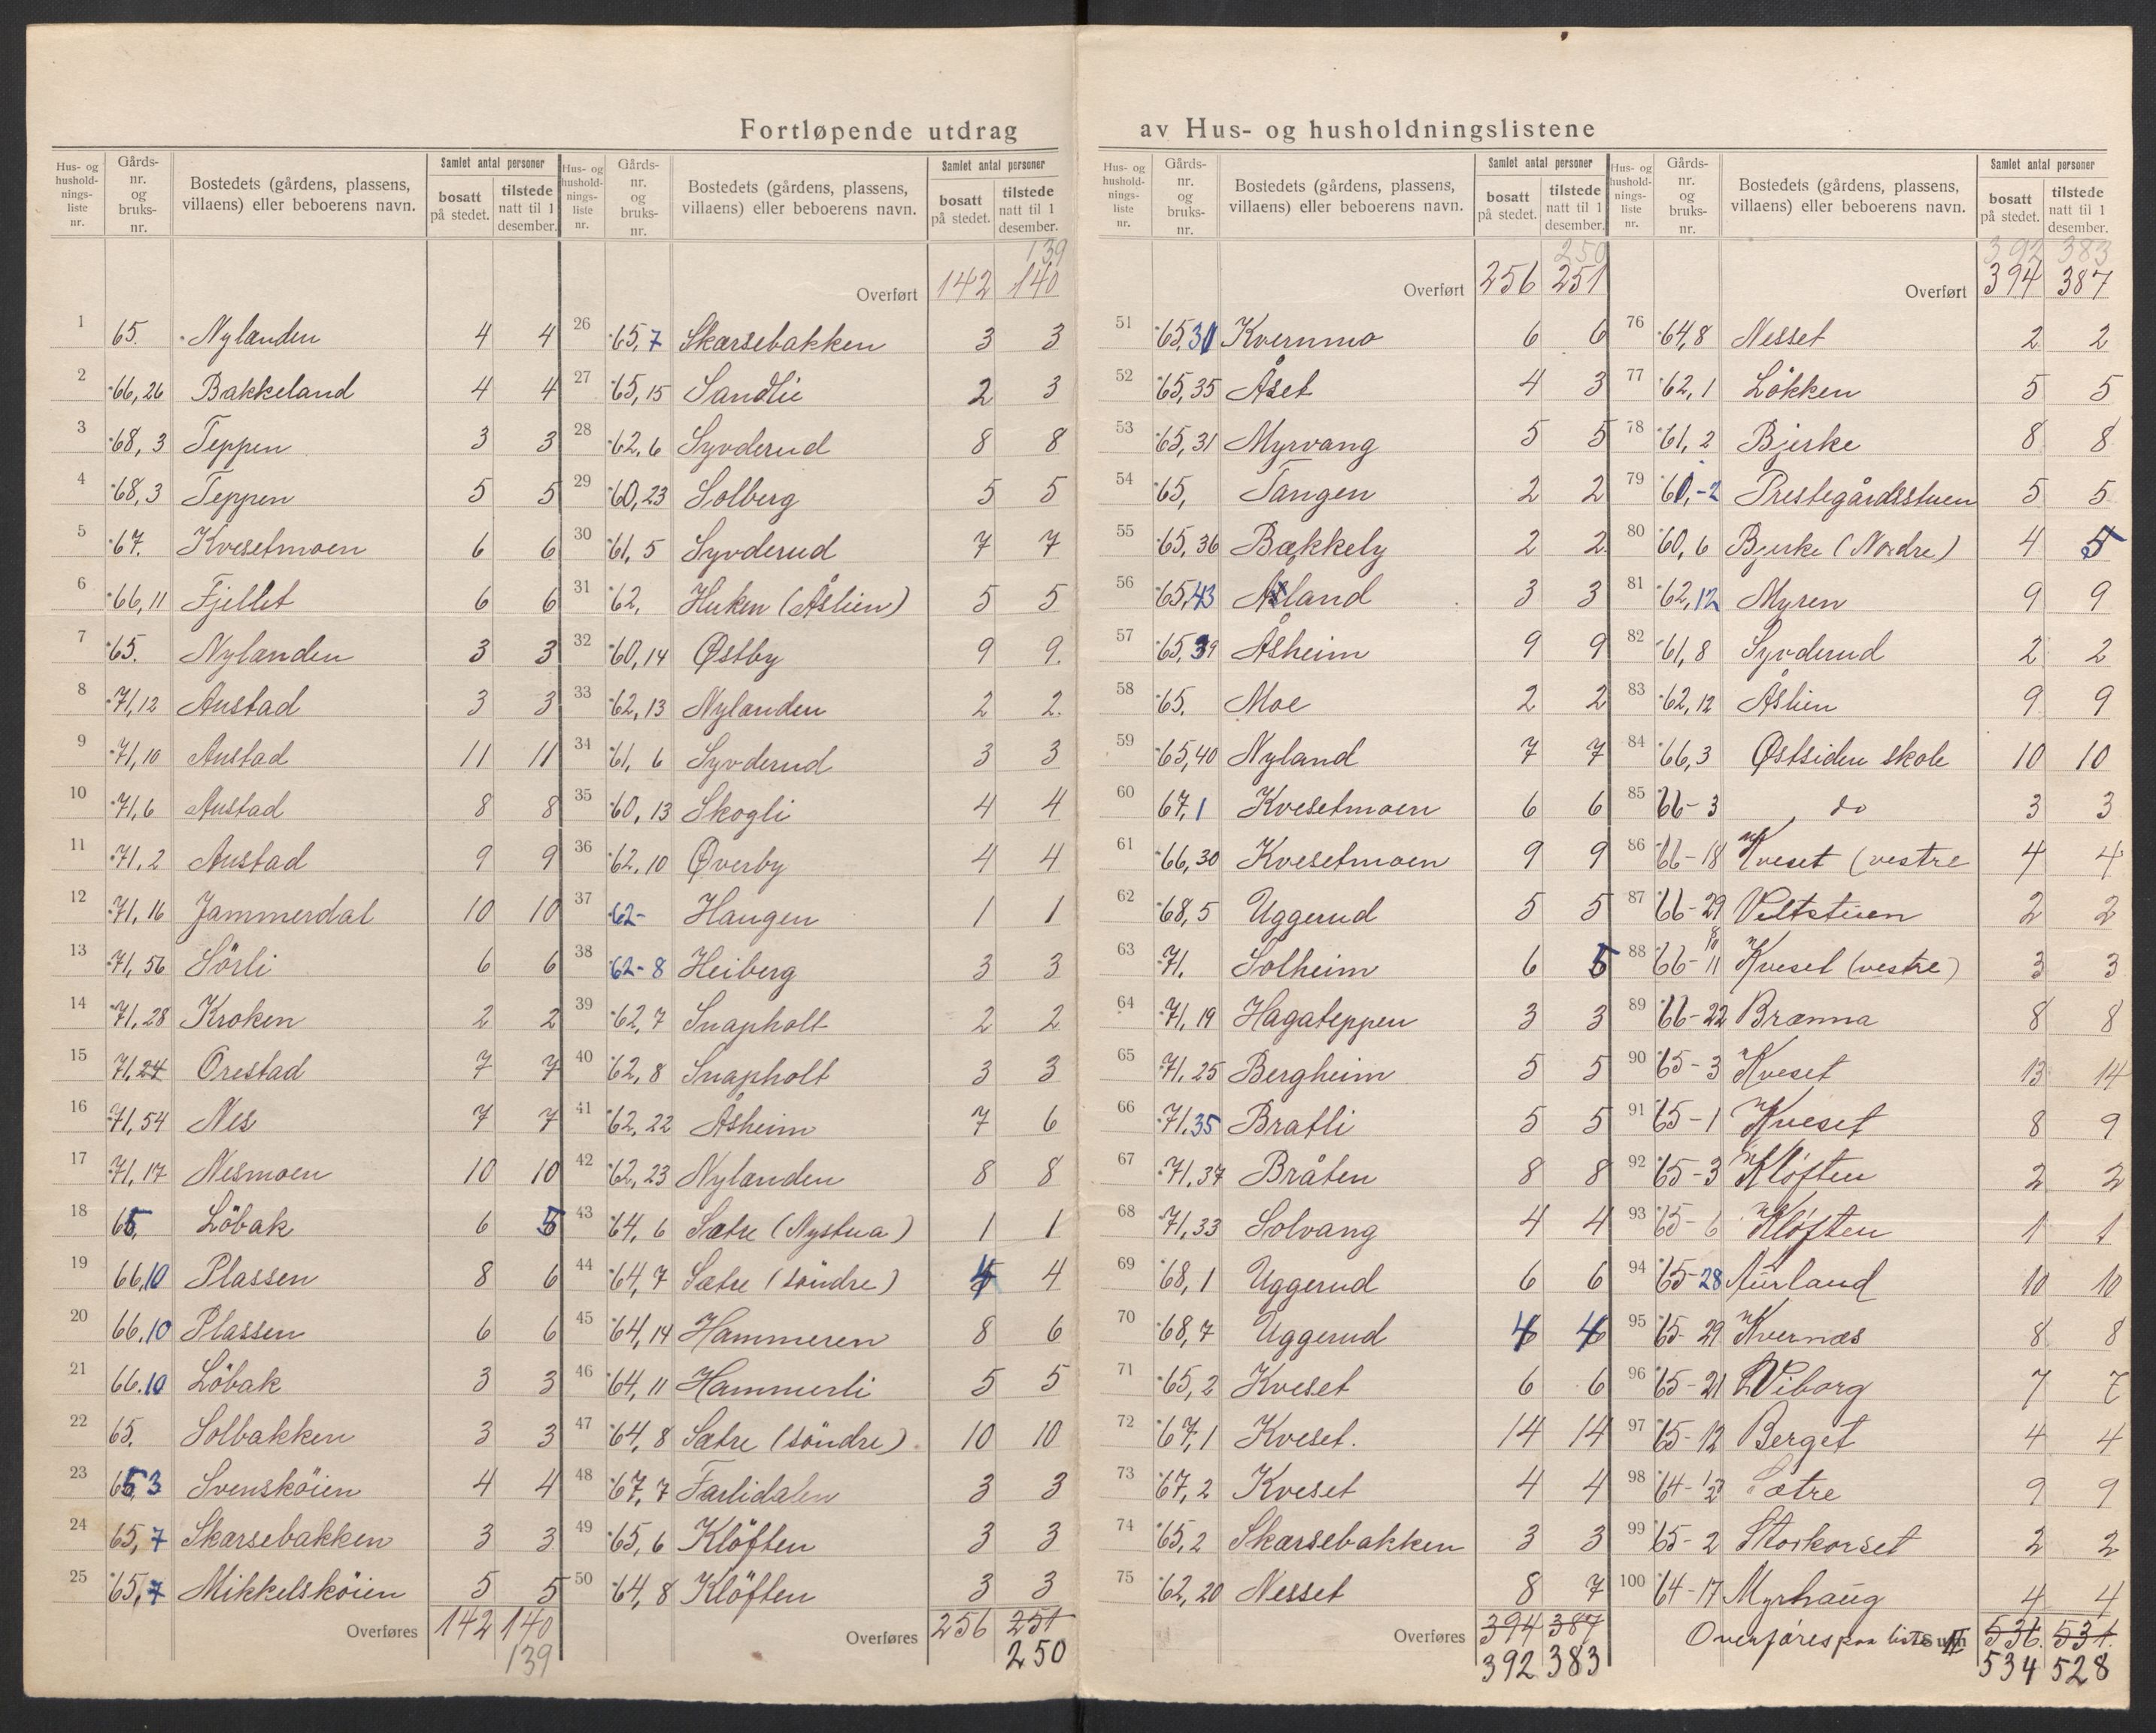 Fortløpende utdrag av Hus- og husholdningslistene
Hus- og husholdningsliste nr. | Gårdsnr. og bruksnr. | Bostedets (gårdens, plassens, villaens) eller beboerens navn. | Samlet antal personer | bosatt på stedet. | tilstede natt til 1 desember.
1 65. Nylanden 4 4
2 66,26 Bakkeland 4 4
3 68,3 Teppen 3 3
4 68,3 Teppen 5 5
5 67. Kvesetmoen 6 6
6 66,11 Fjellet 6 6
7 65. Nylanden 3 3
8 71,12 Austad 3 3
9 71,10 Austad 11 11
10 71,6 Austad 8 8
11 71,2 Austad 9 9
12 71,16 Jammerdal 10 10
13 71,56 Sörli 6 6
14 71,28 Kroken 2 2
15 71,24 Orestad 7 7
16 71,54 Nes 7 7
17 71,17 Nesmoen 10 10
18 65, Löbak 6 5
19 66,10 Plassen 8 6
20 66.10 Plassen 6 6
21 66.10 Löbak 3 3
22 65. Solbakken 3 3
23 65,3 Svensköien 4 4
24 65,7 Skarsebakken 3 3
25 65,7 Mikkelsköien 5 5
Overføres 142 140
139
Hus- og husholdningsliste nr. | Gårdsnr. og bruksnr. | Bostedets (gårdens, plassens, villaens) eller beboerens navn. | Samlet antal personer | bosatt på stedet. | tilstede natt til 1 desember.
139
Overført 142 140
26 65,7 Skarsebakken 3 3
27 65,15 Sandlie 2 3
28 62,6 Syvderud 8 8
29 60,23 Solberg 5 5
30 61,5 Syvderud 7 7
31 62, Huken (Åslien) 5 5
32 60,14 Østby 9 9.
33 62,13 Nylanden 2 2.
34 61,6 Syvderud 3 3
35 60,13 Skogli 4 4
36 62,10 Øverby 4 4
37 62- Haugen 1 1
38 62-8 Heiberg 3 3
39 62,7 Snapholt 2 2
40 62,8 Snapholt 3 3
41 62,22 Åsheim 7 6
42 62,23 Nylanden 8 8
43 64,6 Sætre (Nystua) 1 1
44 64,7 Sætre (söndre) 4 4
45 64,14 Hammeren 8 6
46 64,11 Hammerli 5 5
47 64,8 Sætre (söndre) 10 10
48 67,7 Farlidalen 3 3
49 65,6 Klöften 3 3
50 64,8 Klöften 3 3
Overføres 256 251
250
Hus- og husholdningsliste nr. | Gårdsnr. og bruksnr. | Bostedets (gårdens, plassens, villaens) eller beboerens navn. | Samlet antal personer | bosatt på stedet. | tilstede natt til 1 desember.
250
Overført 256 251
51 65,30 Kvernmo 6 6
52 65,35 Åset 4 3
53 65,31 Myrvang 5 5
54 65, Tangen 2 2
55 65,36 Bækkely 2 2
56 65,43 Åsland 3 3
57 65,39 Åsheim 9 9
58 65. Moe 2 2
59 65,40 Nyland 7 7
60 67,1 Kvesetmoen 6 6
61 66,30 Kvesetmoen 9 9
62 68,5 Uggerud 5 5
63 71. Solheim 6 5
64 71,19 Hagateppen 3 3
65 71.25 Bergheim 5 5
66 71.35 Bratli 5 5
67 71.37 Bråten 8 8
68 71,33 Solvang 4 4
69 68,1 Uggerud 6 6
70 68,7 Uggerud 4 4
71 65,2 Kveset 6 6
72 67,1 Kveset. 14 14
73 67,2 Kveset 4 4
74 65,2 Skarsebakken 3 3
75 62,20 Nesset 8 7
Overføres 394 387
392 383
Hus- og husholdningsliste nr. | Gårdsnr. og bruksnr. | Bostedets (gårdens, plassens, villaens) eller beboerens navn. | Samlet antal personer | bosatt på stedet. | tilstede natt til 1 desember.
392 383
Overført 394 387
76 64,8 Nesset 2 2
77 62,1 Lökken 5 5
78 61,2 Bjerke 8 8
79 61,-2 Prestegårdsstuen 5 5
80 60,6 Bjerke (Nordre) 4 5
81 62,12 Myren 9 9
82 61,8 Syvderud 2 2
83 62,12 Åslien 9 9
84 66,3 Østsiden skole 10 10
85 66-3 do 3 3
86 66-18 Kveset (vestre 4 4
87 66-29 Veltstuen 2 2
88 66-10 11 Kveset (vestre) 3 3
89 66-22 Brænna 8 8
90 65-3 Kveset 13 14
91 65-1 Kveset 8 9
92 65-3 Kløften 2 2
93 65-6 Kløften 1 1
94 65-28 Aurland 10 10
95 65-29 Kvernæs 8 8
96 65-21 Viborg 7 7
97 65-12 Berget 4 4
98 64-1/2 Sætre 9 9
99 65-2 Storkorset 2 2
100 64-17 Myrhaug 4 4
Overføres paa liste II Sum 536. 531.
534 528